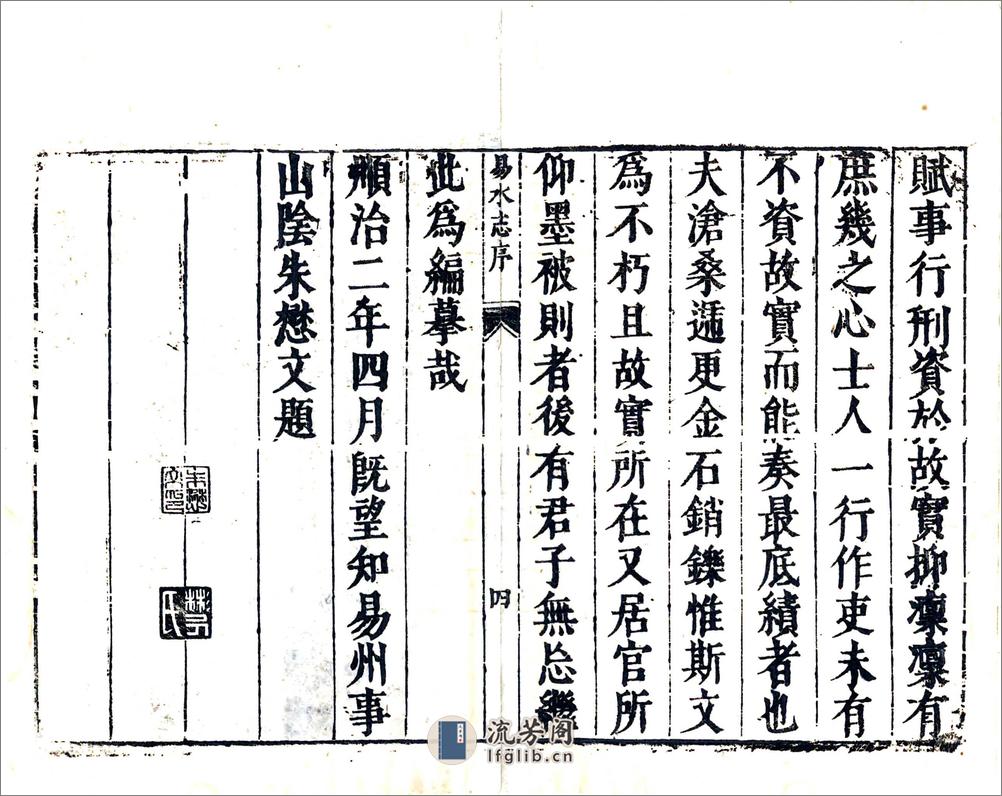 賦事行刑資於故實抑凜凜有
庶幾之心士人一行作吏未有
不資故實而能奏最底績者也
夫滄桑遞更金石銷鑠惟斯文
為不朽且故實所在又居官所
仰墨被則者後有君子無忘
易水志序
四
此為編摹哉
順治二年四月既望知易州事
山陰朱懋文題
流芳阁
lfglib.cn